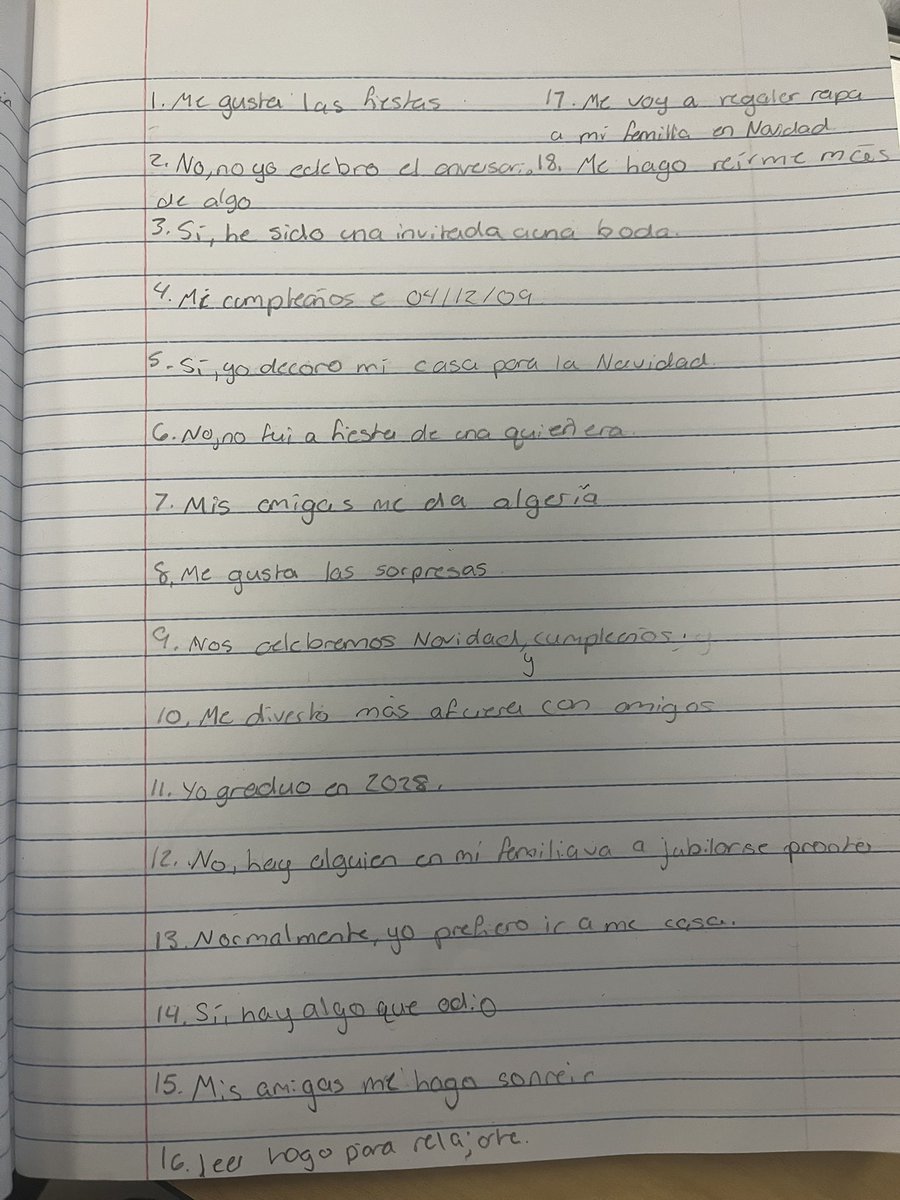 1. Me gusta las fiestas
2. No, no yo celebro el
de algo
3. Si, he sido una invitada a una boda.
4. Mi cumpleaños e 04/12/09
5. Si, yo decoro mi casa para la Navidad
6. No, no fui a fiesta de una quieñera.
7. Mis amigas me da algería
8. Me gusta las sorpresas
9. Nos celebremos Navidad, cumpleaños.
y
10. Me diverto más afuera con amigos
11. Yo graduo en 2028.
12. No, hay alguien en mi familia va a jubilarse
13. Normalmente, yo prefiero ir a me casa.
14. Sí, hay algo que odio
15. Mis amigas me hago sonreir
16. Leer hago para relajarte.
17. Me voy a regaler rapa
a mi familla en Navidad
18. Me hago reírme más